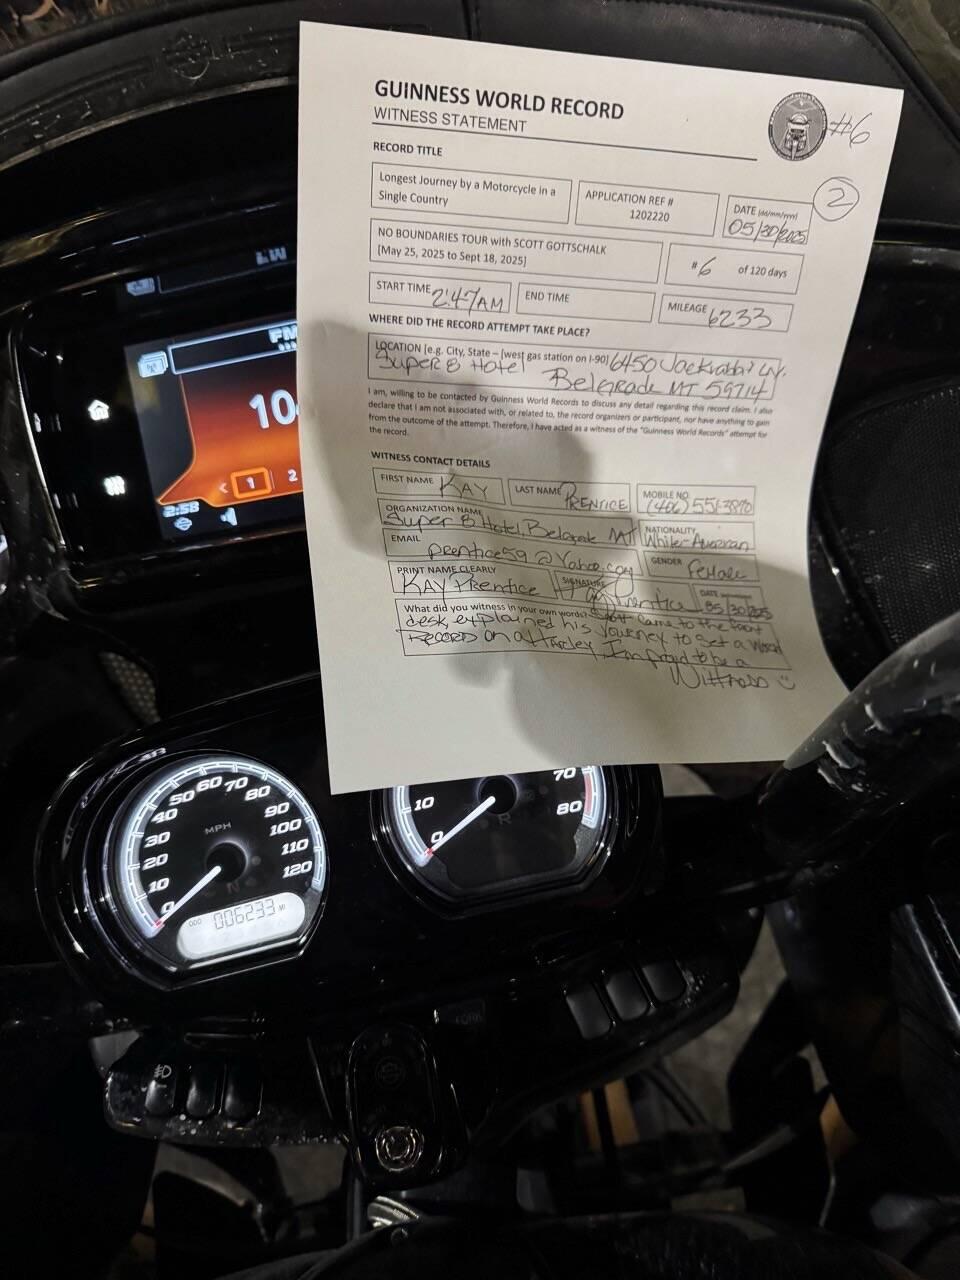 GUINNESS WORLD RECORD
WITNESS STATEMENT
#6
RECORD TITLE
2
Longest Journey by a Motorcycle in a
Single Country
APPLICATION REF #
1202220
DATE (dd/mm/yyyy)
05/30/2025
NO BOUNDARIES TOUR with SCOTT GOTTSCHALK
[May 25, 2025 to Sept 18, 2025]
#6 of 120 days
START TIME 2:47AM
END TIME
MILEAGE 6233
WHERE DID THE RECORD ATTEMPT TAKE PLACE?
LOCATION [e.g. City, State – [west gas station on I-90] 6450 Jackrabbit Ln.
Super 8 Hotel Belgrade MT 59714
I am, willing to be contacted by Guinness World Records to discuss any detail regarding this record claim. I also
declare that I am not associated with, or related to, the record organizers or participant, nor have anything to gain
from the outcome of the attempt. Therefore, I have acted as a witness of the "Guinness World Records" attempt for
the record.
WITNESS CONTACT DETAILS
FIRST NAME KAY
LAST NAME PRENTICE
MOBILE NO.
(406)
ORGANIZATION NAME
Super 8 Hotel, Belgrade MT
NATIONALITY
White-American
EMAIL
prentice59@Yahoo.com
GENDER Female
PRINT NAME CLEARLY
KAY Prentice
SIGNATURE
Kay Prentice
DATE
05/30/2025
What did you witness in your own words? Scott came to the front
desk, explained his journey to set a World
RECORD on a Harley. I'm proud to be a
Witness
FM
10
1
2
2:58
50 60 70
40
80
30
MPH
90
20
100
10
110
0
120
N
ODO 006233 MI
10
0
R
70
80